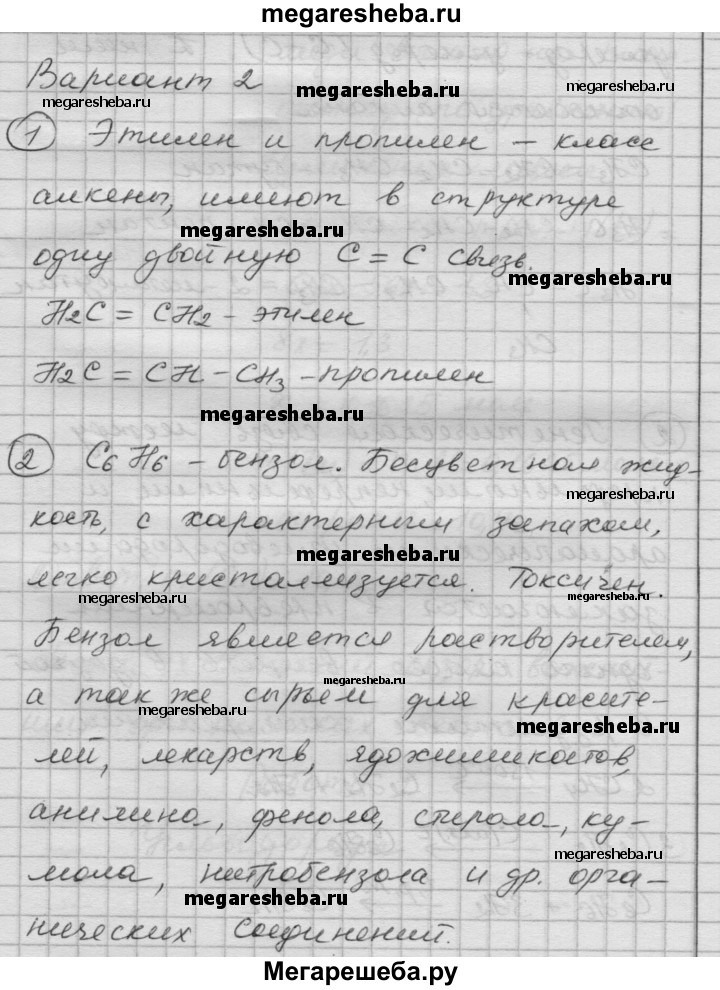 megaresheba.ru
Вариант 2
megaresheba.ru megaresheba.ru
1 Этилен и пропилен – класс
megaresheba.ru
алкены, имеют в структуре
megaresheba.ru
одну двойную C = C связь.
megaresheba.ru
H2C = CH2 – этилен
H2C = CH – CH3 – пропилен
megaresheba.ru
2 C6H6 – бензол. Бесцветная жид-
megaresheba.ru
кость, с характерным запахом,
megaresheba.ru
легко кристаллизуется. Токсичен.
megaresheba.ru megaresheba.ru
Бензол является растворителем,
megaresheba.ru
а так же сырьем для красите-
megaresheba.ru megaresheba.ru
лей, лекарств, ядохимикатов,
анилина, фенола, стирола, ку-
megaresheba.ru
мола, нитробензола и др. орга-
megaresheba.ru
нических соединений.
Мегарешеба.ру